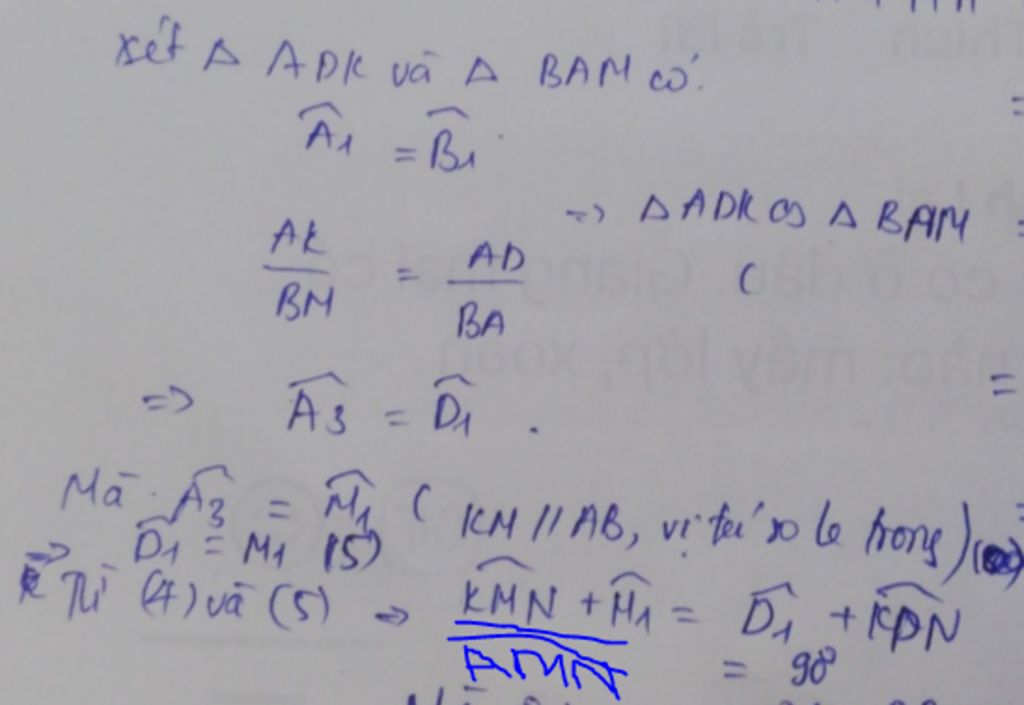 xét Δ ADK và Δ BAM có:
Â1 = B̂1
=> Δ ADK ∽ Δ BAM
AK/BM = AD/BA
(
=> Â3 = D̂1.
Mà Â3 = M̂1 ( KM // AB, vị trí so le trong)
=> D̂1 = M1 (5)
Từ (4) và (5) => KMN + M̂1 = D̂1 + KDN
AMN = 90°